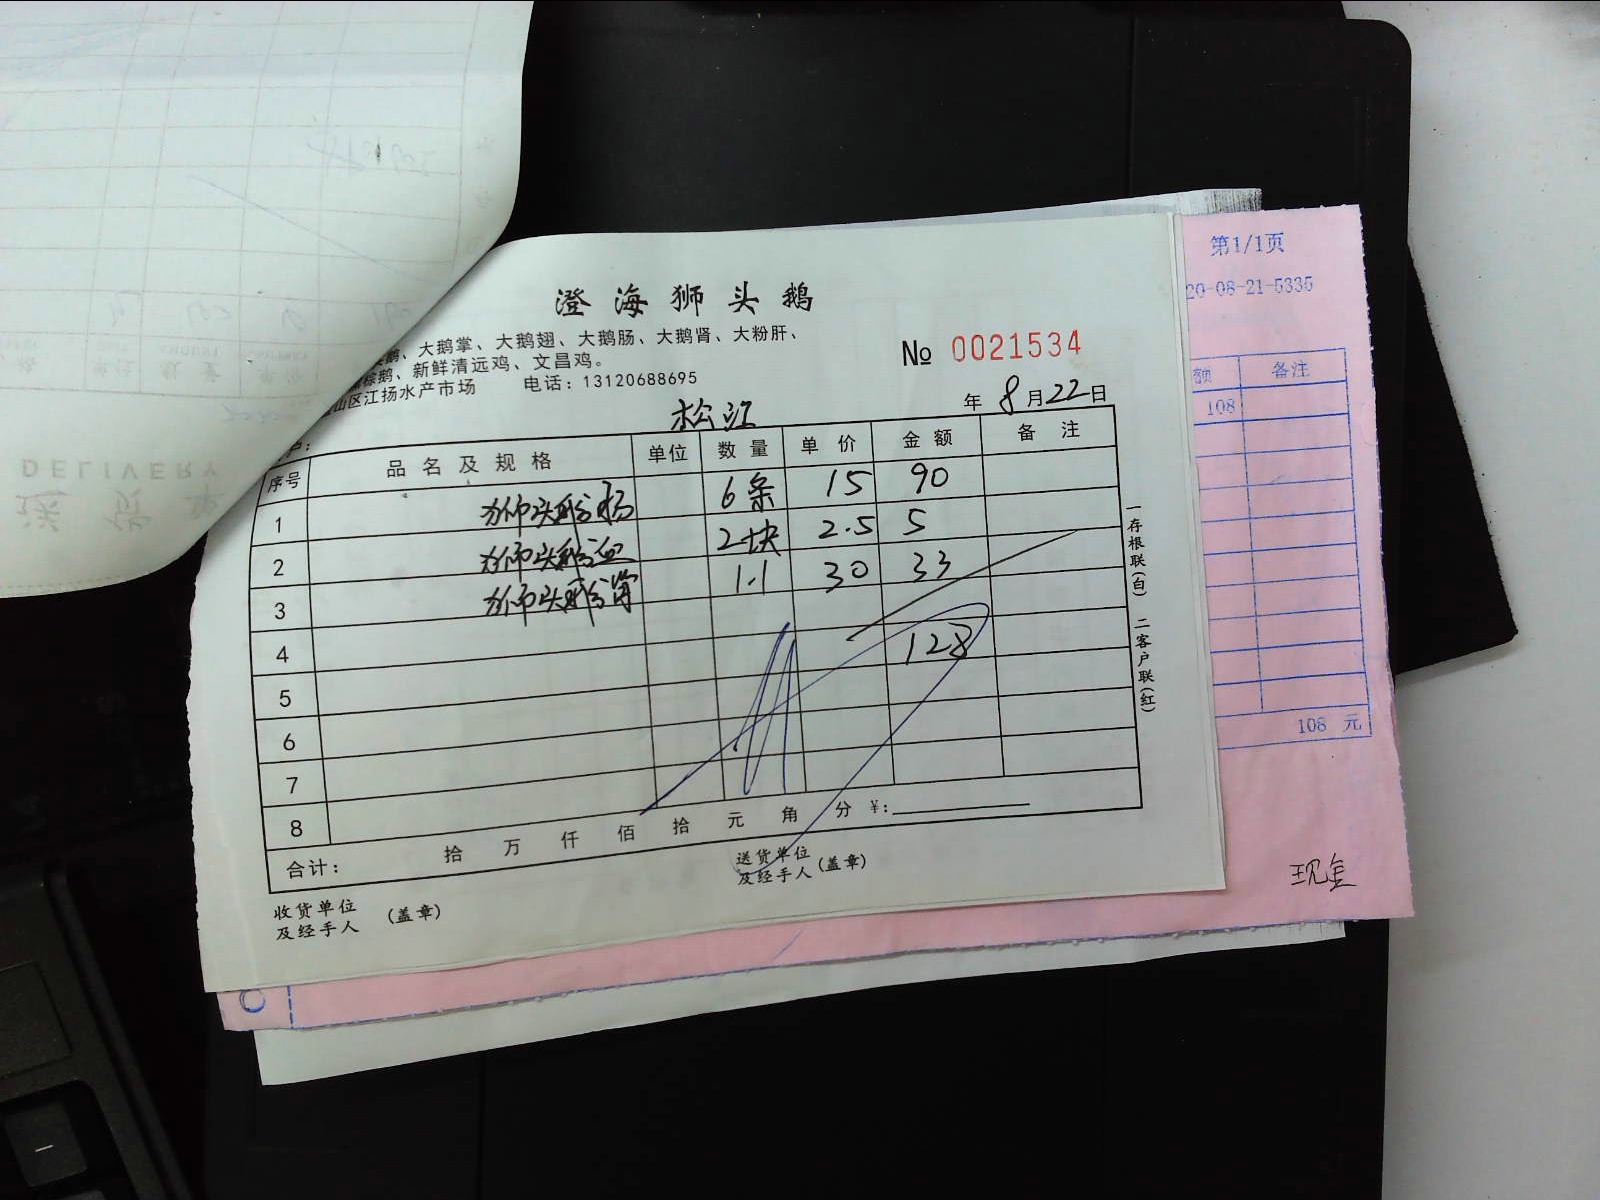 澄海狮头鹅
鹅、大鹅掌、大鹅翅、大鹅肠、大鹅肾、大粉肝、
棕鹅、新鲜清远鸡、文昌鸡。
山区江扬水产市场 电话：13120688695
№ 0021534
松江
年 8月22日
户：
序号 品名及规格 单位 数量 单价 金额 备注
1 狮头鹅肠 6条 15 90
2 狮头鹅血 2块 2.5 5
3 狮头鹅肾 1.1 30 33
4 128
5
6
7
8
合计： 拾 万 仟 佰 拾 元 角 分 ¥：
收货单位及经手人（盖章）
送货单位及经手人（盖章）
一存根联（白） 二客户联（红）
第1/1页
20-08-21-5335
额 备注
108
108 元
现金
DELIVERY
送货单